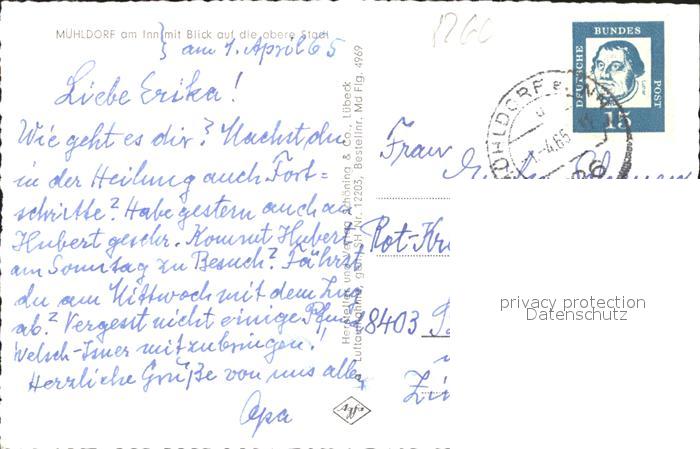 MÜHLDORF am Inn mit Blick auf die obere Stadt
am 1. April 65
1260
Liebe Erika!
Wie geht es dir? Machst du
in der Heilung auch Fort=
schritte? Habe gestern auch an
Hubert geschr. Kommt Hubert
am Sonntag zu Besuch? Fährst
du am Mittwoch mit dem Zug
ab? Vergesst nicht einige
Welsch- mitzubringen!
Herzliche Grüße von uns allen
Opa
Schöning & Co., Lübeck
SH Nr. 12203, Bestellnr. Md Flg. 4969
DEUTSCHE BUNDES POST
15
MÜHLDORF
1.-4.65
Frau
Rot-Kr
8403
privacy protection
Datenschutz